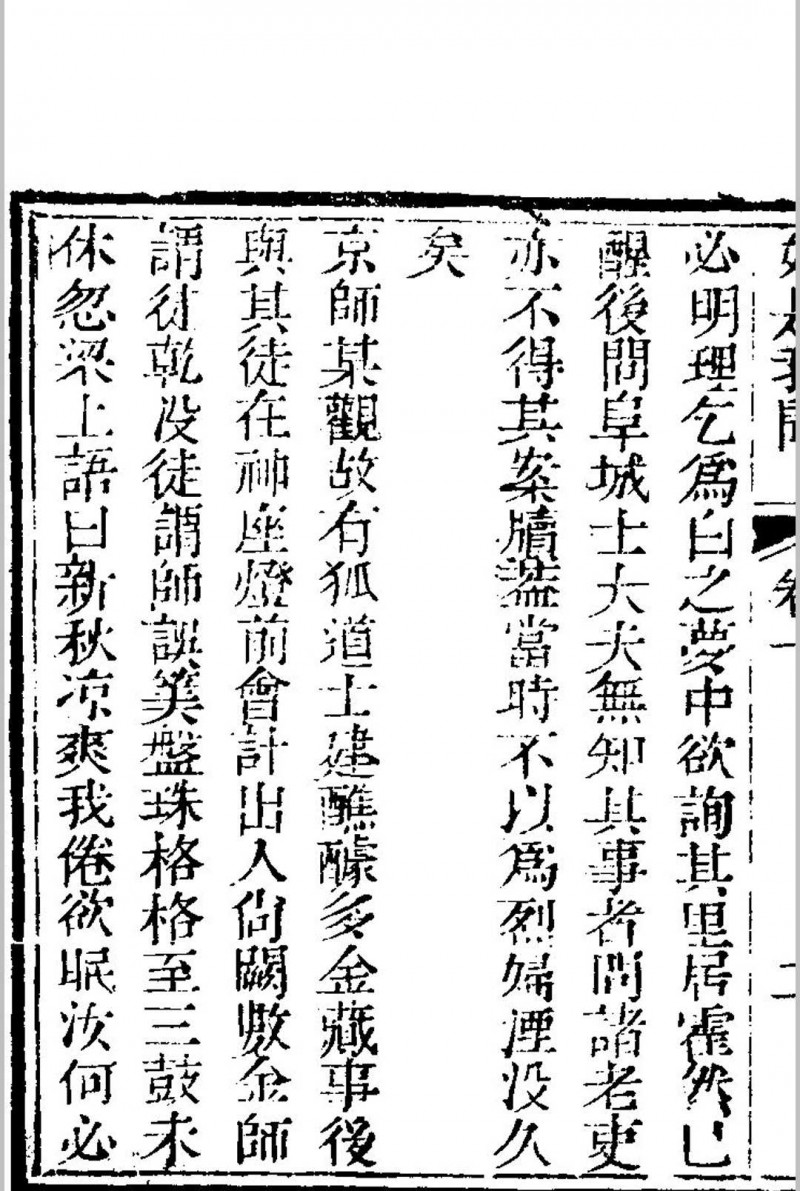 如是我聞 卷一 二
必明理乞爲白之夢中欲詢其里居霍然已
醒後問阜城士大夫無知其事者問諸老吏
亦不得其案牘葢當時不以爲烈婦湮没久
矣
京師某觀故有狐道士建醮醵多金蕆事後
與其徒在神座燈前會計出入尙闕數金師
謂徒乾没徒謂師誤筭盤珠格格至三鼓未
休忽梁上語曰新秋凉爽我倦欲眠汝何必